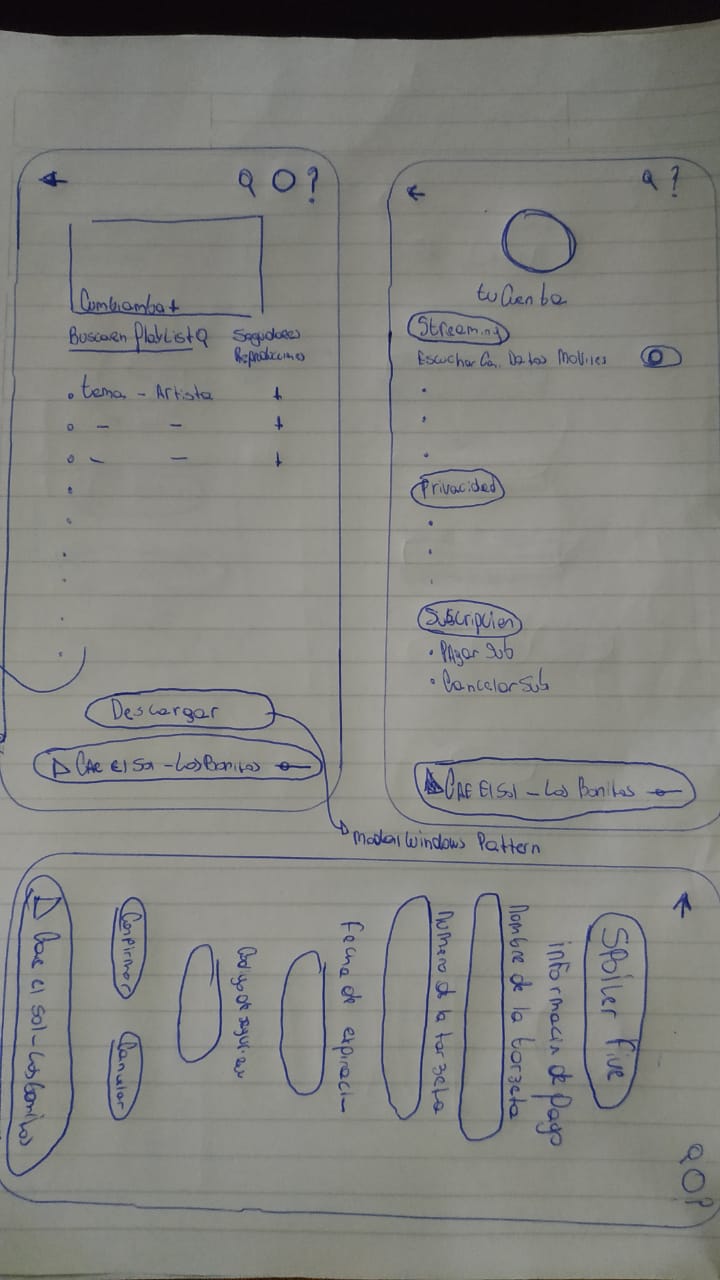 ?
Cumbiamba +
Buscar en PlayList
Seguidores
Reproducciones
tema - Artista +
- - +
- - +
Descargar
CAE El Sol - Los Bonitos
?
tu Cuenta
Streaming
Escuchar Con Datos Moviles
Privacidad
Suscripcion
• PAgar Sub
• Cancelar Sub
CAE El Sol - Los Bonitos
Modal Windows Pattern
Spoiler Five
informacin de pago
Nombre de la tarzeta
numero de la tarzeta
fecha de expiraci-
Codigo de
Confirmar
Canular
Cae el sol - los bonitos